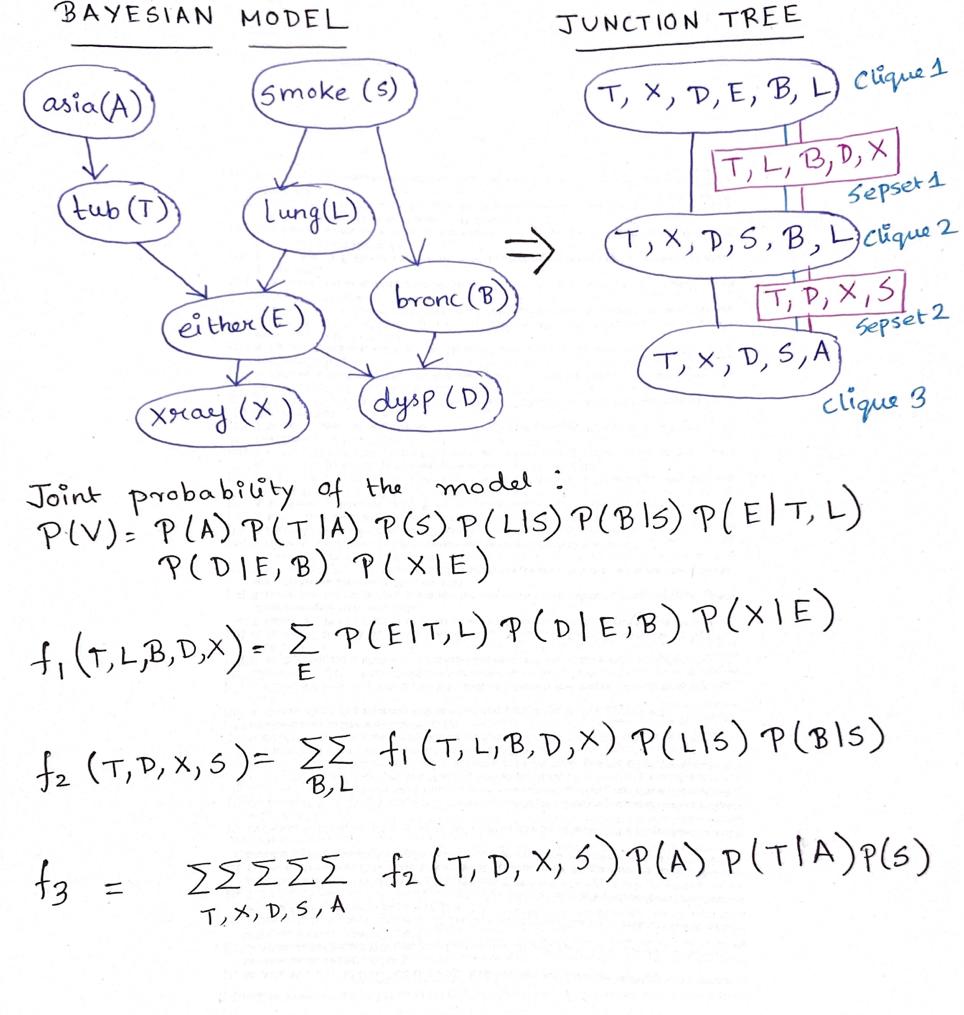 BAYESIAN MODEL
JUNCTION TREE
asia(A)
smoke (S)
tub (T)
lung(L)
either (E)
bronc (B)
xray (X)
dysp (D)
⇒
T, X, D, E, B, L
Clique 1
T, L, B, D, X
Sepset 1
T, X, D, S, B, L
Clique 2
T, D, X, S
Sepset 2
T, X, D, S, A
Clique 3
Joint probability of the model :
P(V) = P(A) P(T|A) P(S) P(L|S) P(B|S) P(E|T, L)
P(D|E, B) P(X|E)
f₁ (T,L,B,D,X) = Σ P(E|T, L) P(D|E,B) P(X|E)
E
f₂ (T, D, X, S) = ΣΣ f₁ (T, L, B, D, X) P(L|S) P(B|S)
B, L
f₃ = ΣΣΣΣΣ f₂ (T, D, X, S) P(A) P(T|A) P(S)
T, X, D, S, A